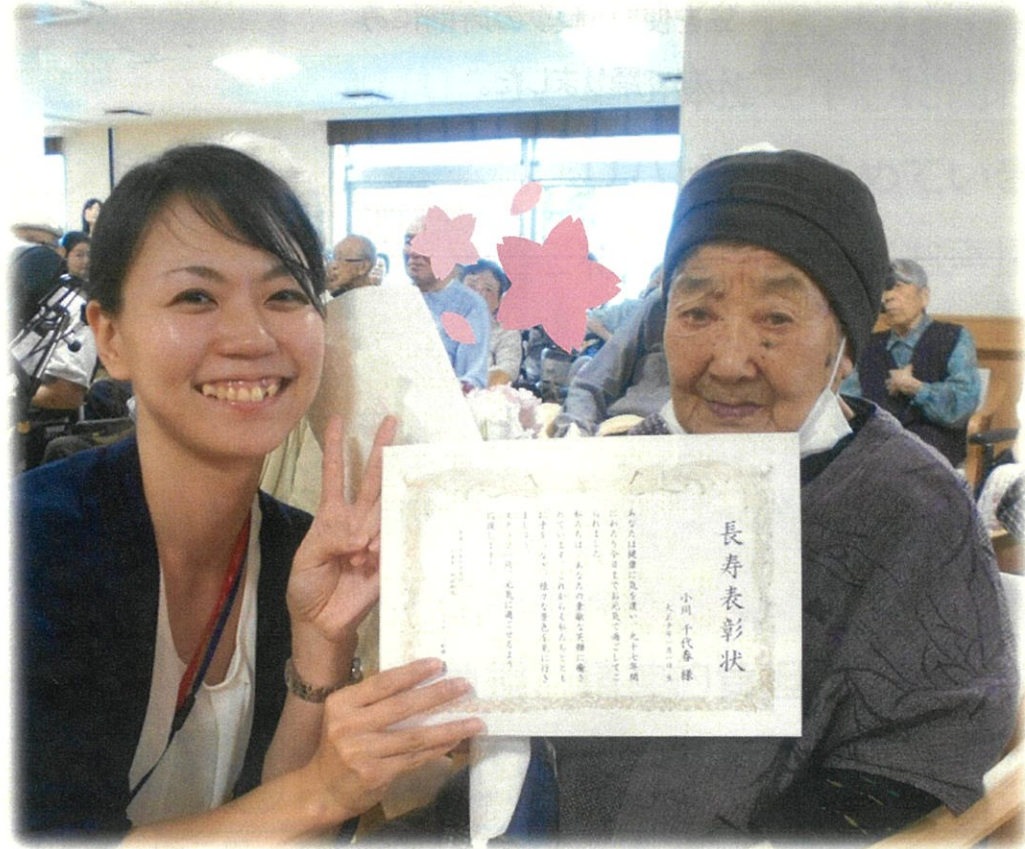 長寿表彰状
小川 千代春 様
あなたは健康に気を遣い、九十七年間
にわたり今日までお元気で過ごしてこ
られました。
私たちは、あなたの素敵な笑顔に癒さ
れています。これからも私たちととも
に手をつなぎ、様々な景色を見に行き
ましょう。
元気に過ごせるよう
応援します。